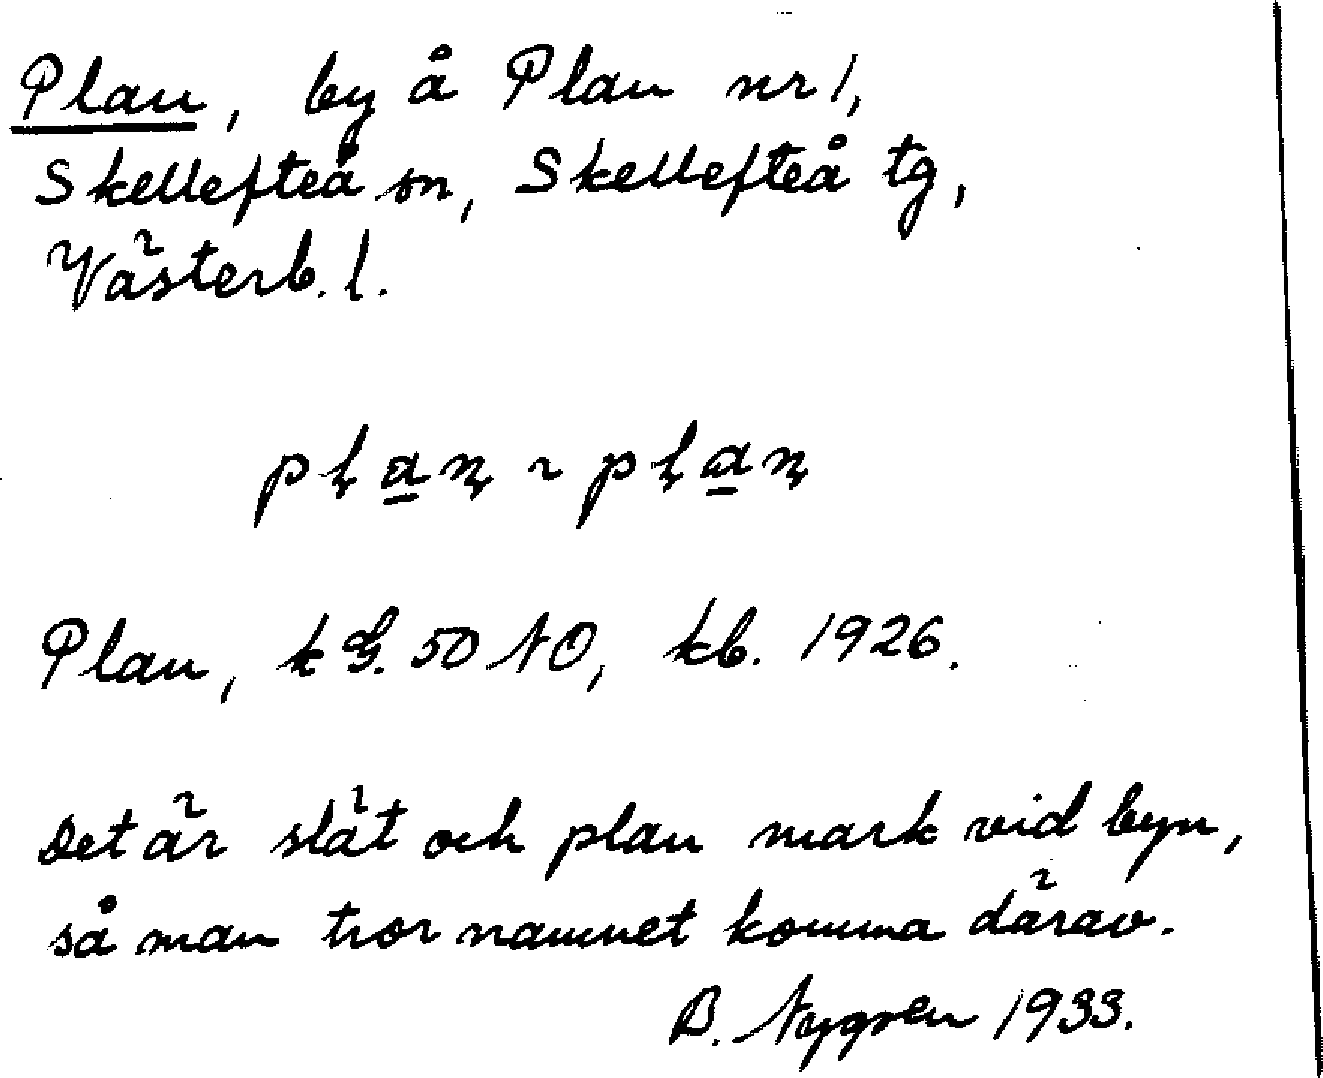 Plan, by å Plan nr 1,
Skellefteå sn, Skellefteå tg,
Västerb. l.
plan ~ plan
Plan, k G. 50 NO, kb. 1926.
Det är slät och plan mark vid byn,
så man tror namnet komma därav.
B. Nygren 1933.